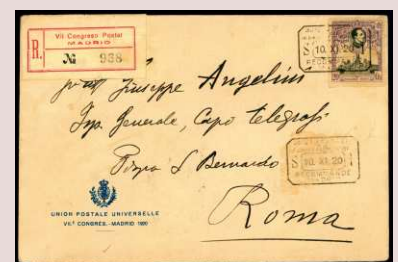 VII. Congreso Postal
MADRID
R. № 938
Giuseppe Angelini
Isp. Generale, Capo Telegrafi
S. Bernardo
Roma
10. XI. 20
10. XI. 20
UNION POSTALE UNIVERSELLE
VII.e CONGRÈS.-MADRID 1920